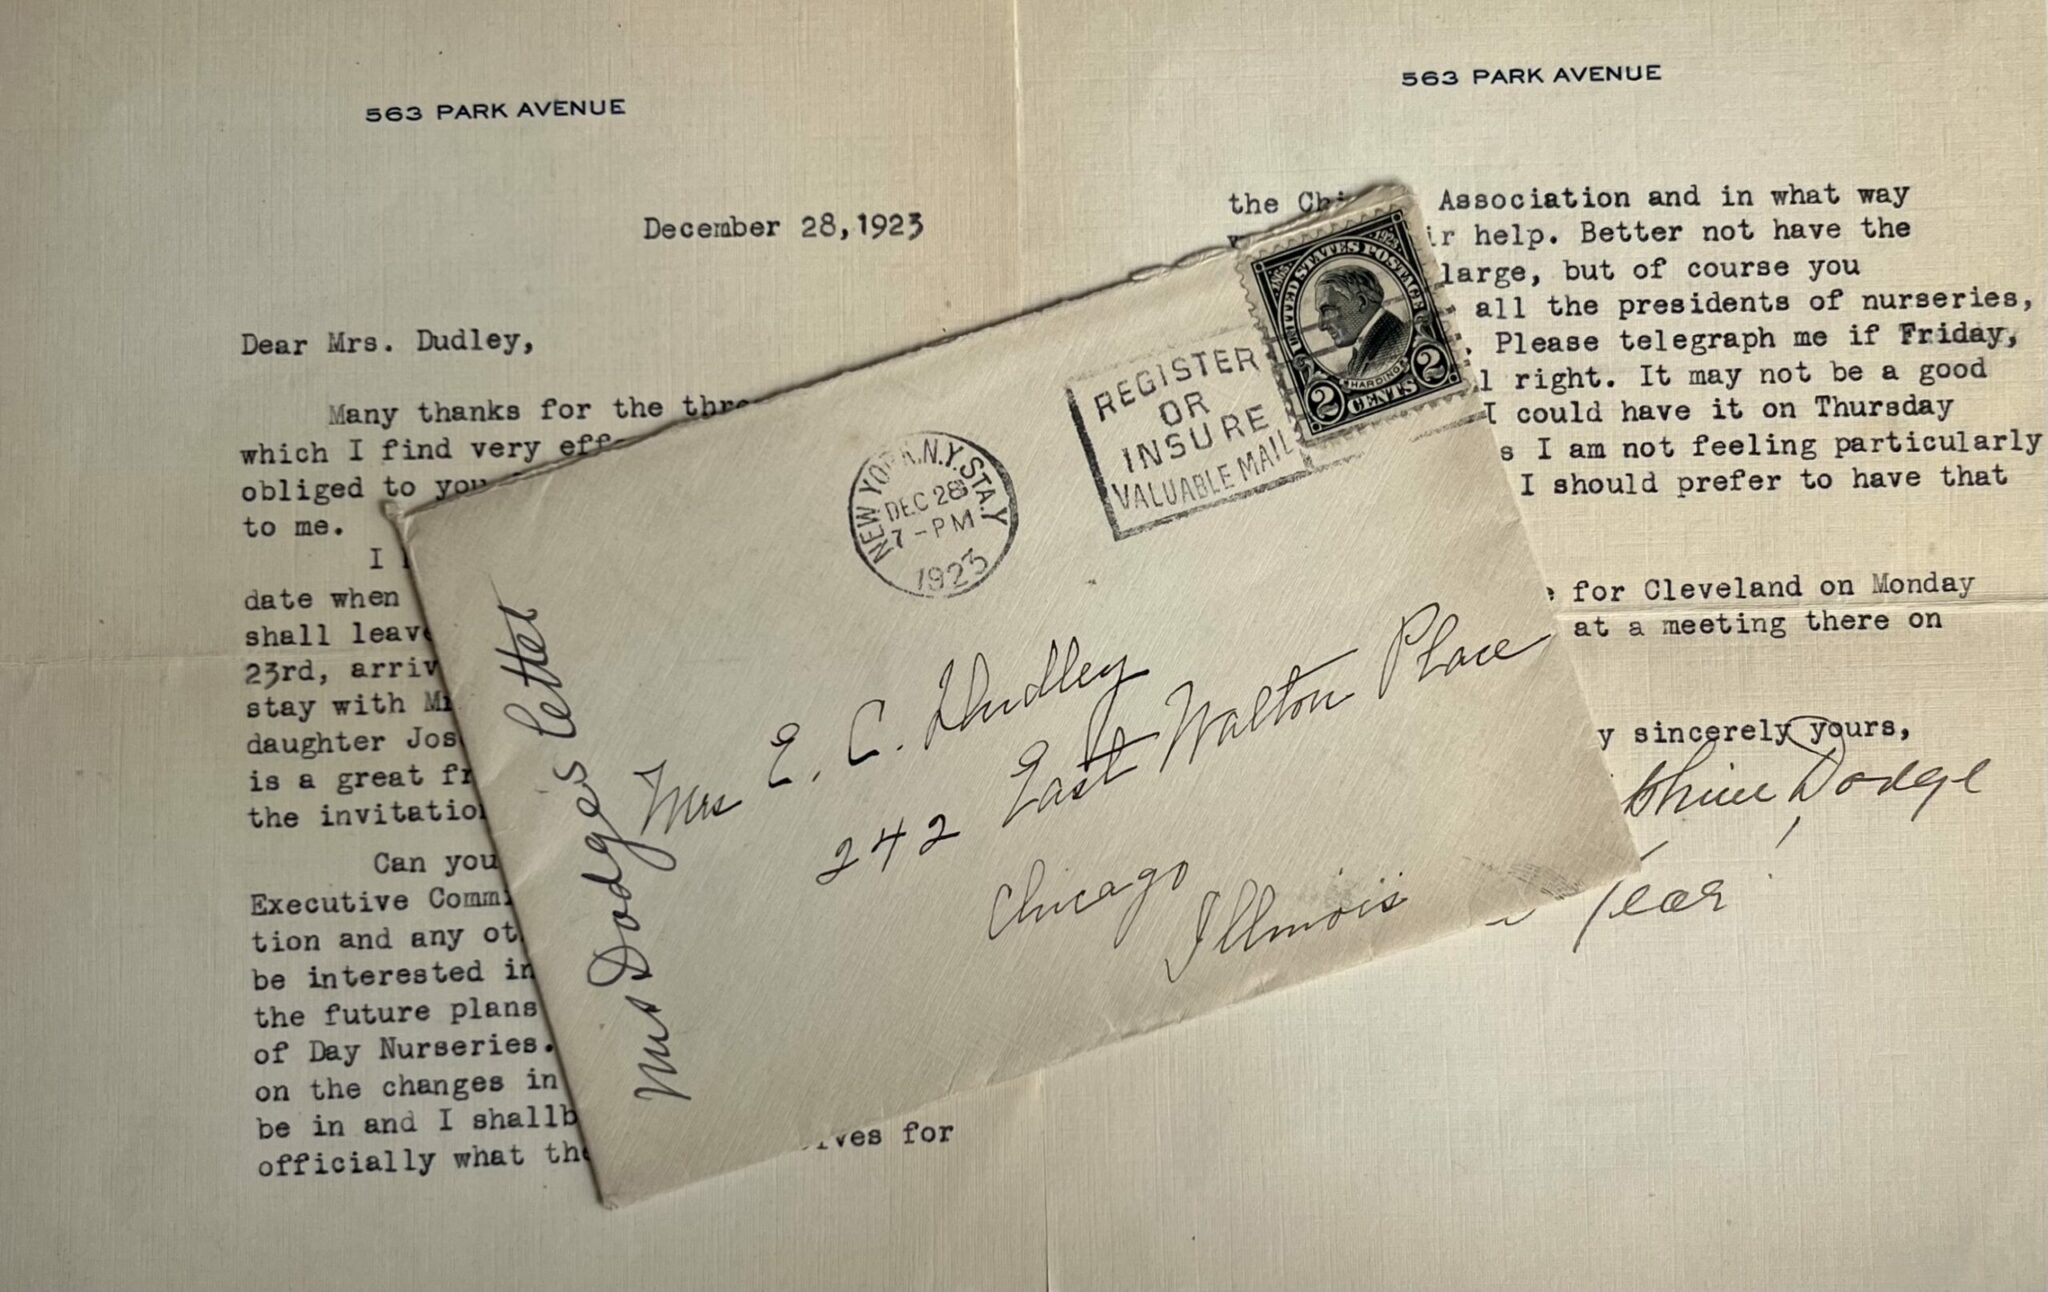 563 PARK AVENUE
December 28,1923
Dear Mrs. Dudley,
Many thanks for the
which I find very
obliged to you
to me.
I
date when
shall leave
23rd,
stay with
daughter
is a great
the
Can you
Executive
tion and any
be interested in
the future plans
of Day Nurseries.
on the changes in
be in and I shallb
officially what
for
563 PARK AVENUE
the Association and in what way
help. Better not have the
large, but of course you
all the presidents of nurseries,
. Please telegraph me if Friday,
right. It may not be a good
I could have it on Thursday
I am not feeling particularly
I should prefer to have that
for Cleveland on Monday
at a meeting there on
sincerely yours,
Dodge
Year
NEW YORK, N.Y. STA. Y
DEC 28
7-PM
1923
REGISTER
OR
INSURE
VALUABLE MAIL
UNITED STATES POSTAGE
1923
HARDING
2 CENTS 2
Mrs E. C. Dudley
242 East Walton Place
Chicago
Illinois
Mrs Dodge's letter